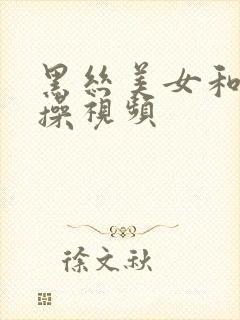 黑丝美女和
操視頻
徐文秋